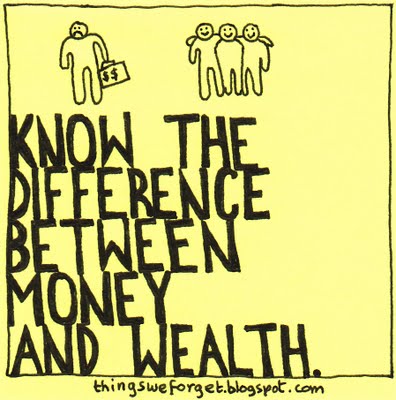 $$
KNOW THE
DIFFERENCE
BETWEEN
MONEY
AND WEALTH.
thingsweforget.blogspot.com